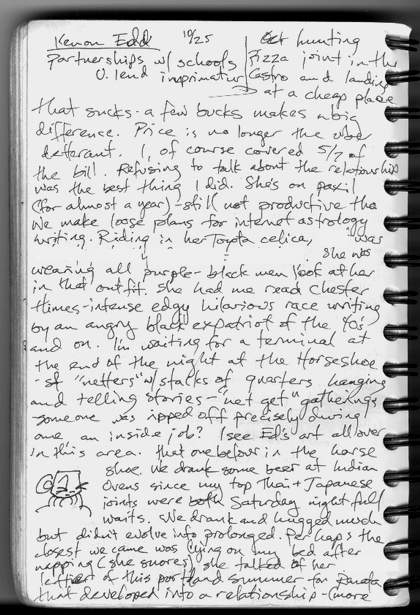 Kenon Edd 10/25
partnerships w/ schools
U. lend imprimatur
hunting
Pizza joint in the
Castro and landing
at a cheap place
that sucks - a few bucks makes a big
difference. Price is no longer the uber
deterrant. I, of course covered 5/7 of
the bill. Refusing to talk about the relationship
was the best thing I did. She's on paxil
(for almost a year) - still not productive tho
We make loose plans for internet astrology
writing. Riding in her Toyota celica, was
she was
wearing all purple - black men look at her
in that outfit. She had me read Chester
Himes - intense edgy hilarious race writing
by an angry black expatriot of the 40's
and on. I'm waiting for a terminal at
the end of the night at the Horseshoe
- of "netters" w/ stacks of quarters hanging
and telling stories - "net get" gatherings
someone was ripped off precisely during
one an inside job? I see Ed's art all over
in this area. that one before in the horse
shoe. We drank some beer at Indian
Ovens since my top Thai + Japanese
joints were both Saturday night full
waits. We drank and hugged much
but didn't evolve into prolonged. Perhaps the
closest we came was lying on my bed after
napping (she snores), she talked of her
letter of this portland summer
that developed into a relationship - (more